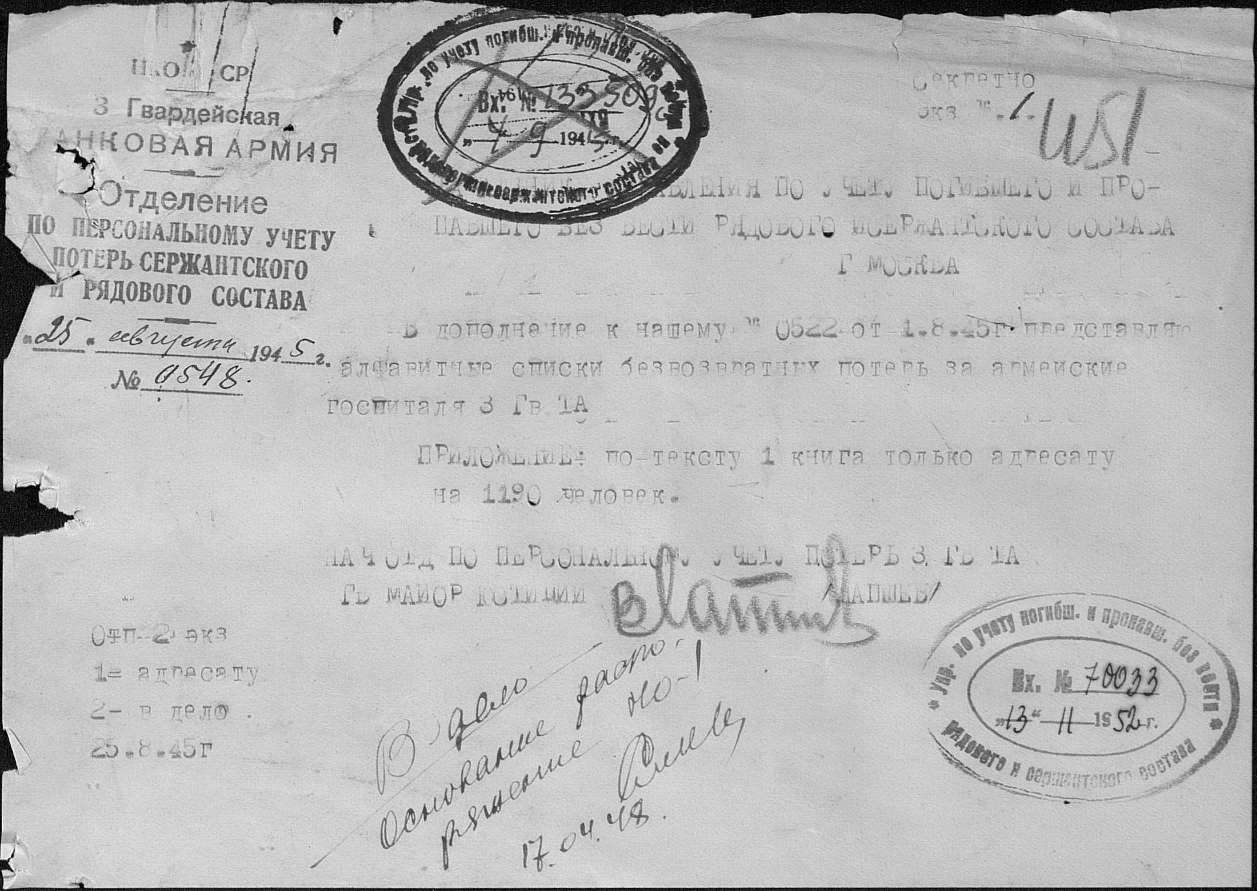 СР
3 Гвардейская
АНКОВАЯ АРМИЯ
Отделение
ПО ПЕРСОНАЛЬНОМУ УЧЕТУ
ПОТЕРЬ СЕРЖАНТСКОГО
И РЯДОВОГО СОСТАВА
"25" августа 1945 г.
№ 0548.
Упр. по учету погибш. и пропавш. без вести
сержантского состава
Вх. № 133509
"4" 9 1945
Секретно
экз № 1.
ПО УЧЕТУ ПОГИБШЕГО И ПРО-
ПАВШЕГО БЕЗ ВЕСТИ РЯДОВОГО ИСЕРЖАНТСКОГО СОСТАВА
Г МОСКВА
В дополнение к нашему № 0522 от 1.8.45г. представляю
алфавитные списки безвозвратных потерь за армейские
госпиталя 3 Гв ТА
ПРИЛОЖЕНИЕ: по-тексту 1 книга только адресату
на 1190 человек.
НАЧ ОТД ПО ПЕРСОНАЛЬНОМУ УЧЕТУ ПОТЕРЬ 3 ГВ ТА
ГВ МАЙОР ЮСТИЦИИ /ЛАПШЕВ/
Отп 2 экз
1= адресату
2- в дело
25.8.45г
В дело
Основание распо-
ряжение но-1
17.04.48.
* Упр. по учету погибш. и пропавш. без вести *
рядового и сержантского состава
Вх. № 70033
"13" 11 1952 г.